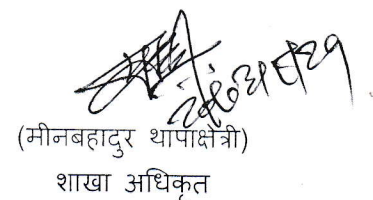 (मीनबहादुर थापाक्षेत्री)
शाखा अधिकृत